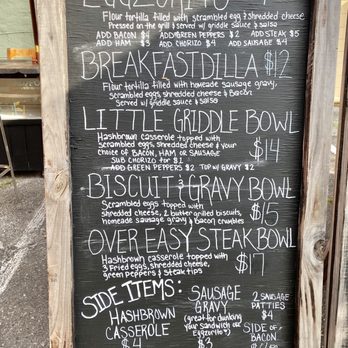 Flour tortilla filled with scrambled egg & shredded cheese
Pressed on the grill & served w/ griddle sauce & salsa
ADD BACON $4 ADD GREEN PEPPERS $2 ADD STEAK $5
ADD HAM $3 ADD CHORIZO $4 ADD SAUSAGE $4
BREAKFASTDILLA $12
Flour tortilla filled with homeade sausage gravy,
scrambled eggs, shredded cheese & Bacon
Served w/ griddle sauce & salsa
LITTLE GRIDDLE BOWL
Hashbrown casserole topped with
scrambled eggs, shredded cheese & your
choice of BACON, HAM or SAUSAGE
$14
SUB CHORIZO for $1
ADD GREEN PEPPERS $2 TOP w/ GRAVY $2
BISCUIT & GRAVY BOWL
Scrambled eggs topped with
shredded cheese, 2 butter grilled biscuits,
homeade sausage gravy & Bacon crumbles
$15
OVER EASY STEAK BOWL
Hashbrown casserole topped with
3 Fried eggs, shredded cheese,
green peppers & steak tips
$17
SIDE ITEMS:
HASHBROWN
CASSEROLE
$4
SAUSAGE
GRAVY
(great for dunking
your sandwich or
Eggzorito!)
$3
2 SAUSAGE
PATTIES
$4
SIDE OF
BACON